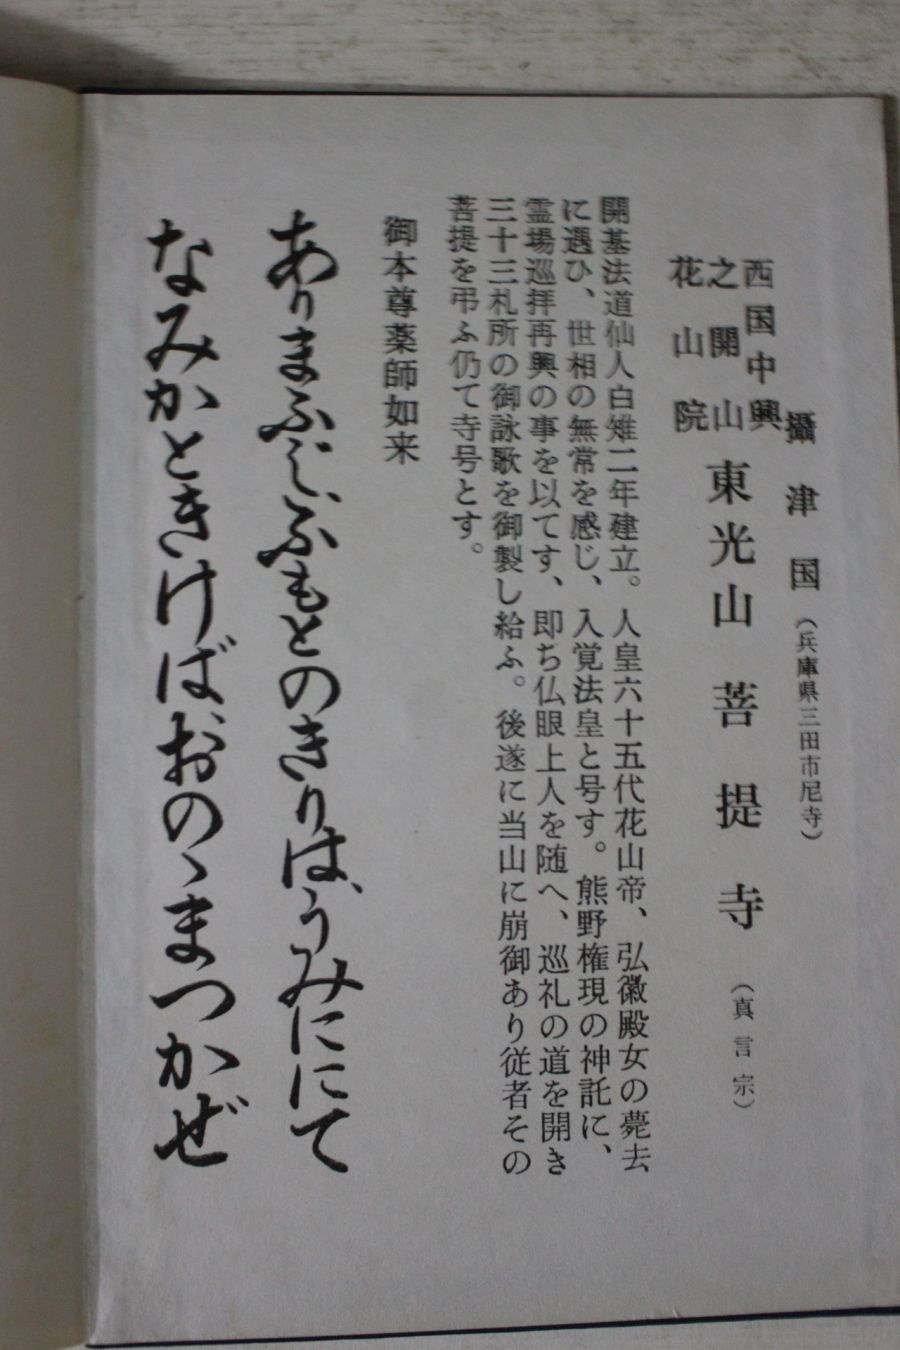 攝津国（兵庫県三田市尼寺）
西国中興
之開山
花山院
東光山菩提寺（真言宗）
開基法道仙人白雉二年建立。人皇六十五代花山帝、弘徽殿女の薨去
に遇ひ、世相の無常を感じ、入覚法皇と号す。熊野権現の神託に、
霊場巡拝再興の事を以てす、即ち仏眼上人を随へ、巡礼の道を開き
三十三札所の御詠歌を御製し給ふ。後遂に当山に崩御あり従者その
菩提を弔ふ仍て寺号とす。
御本尊薬師如来
ありまふじふもとのきりは、うみににて
なみかときけばおのゝまつかぜ